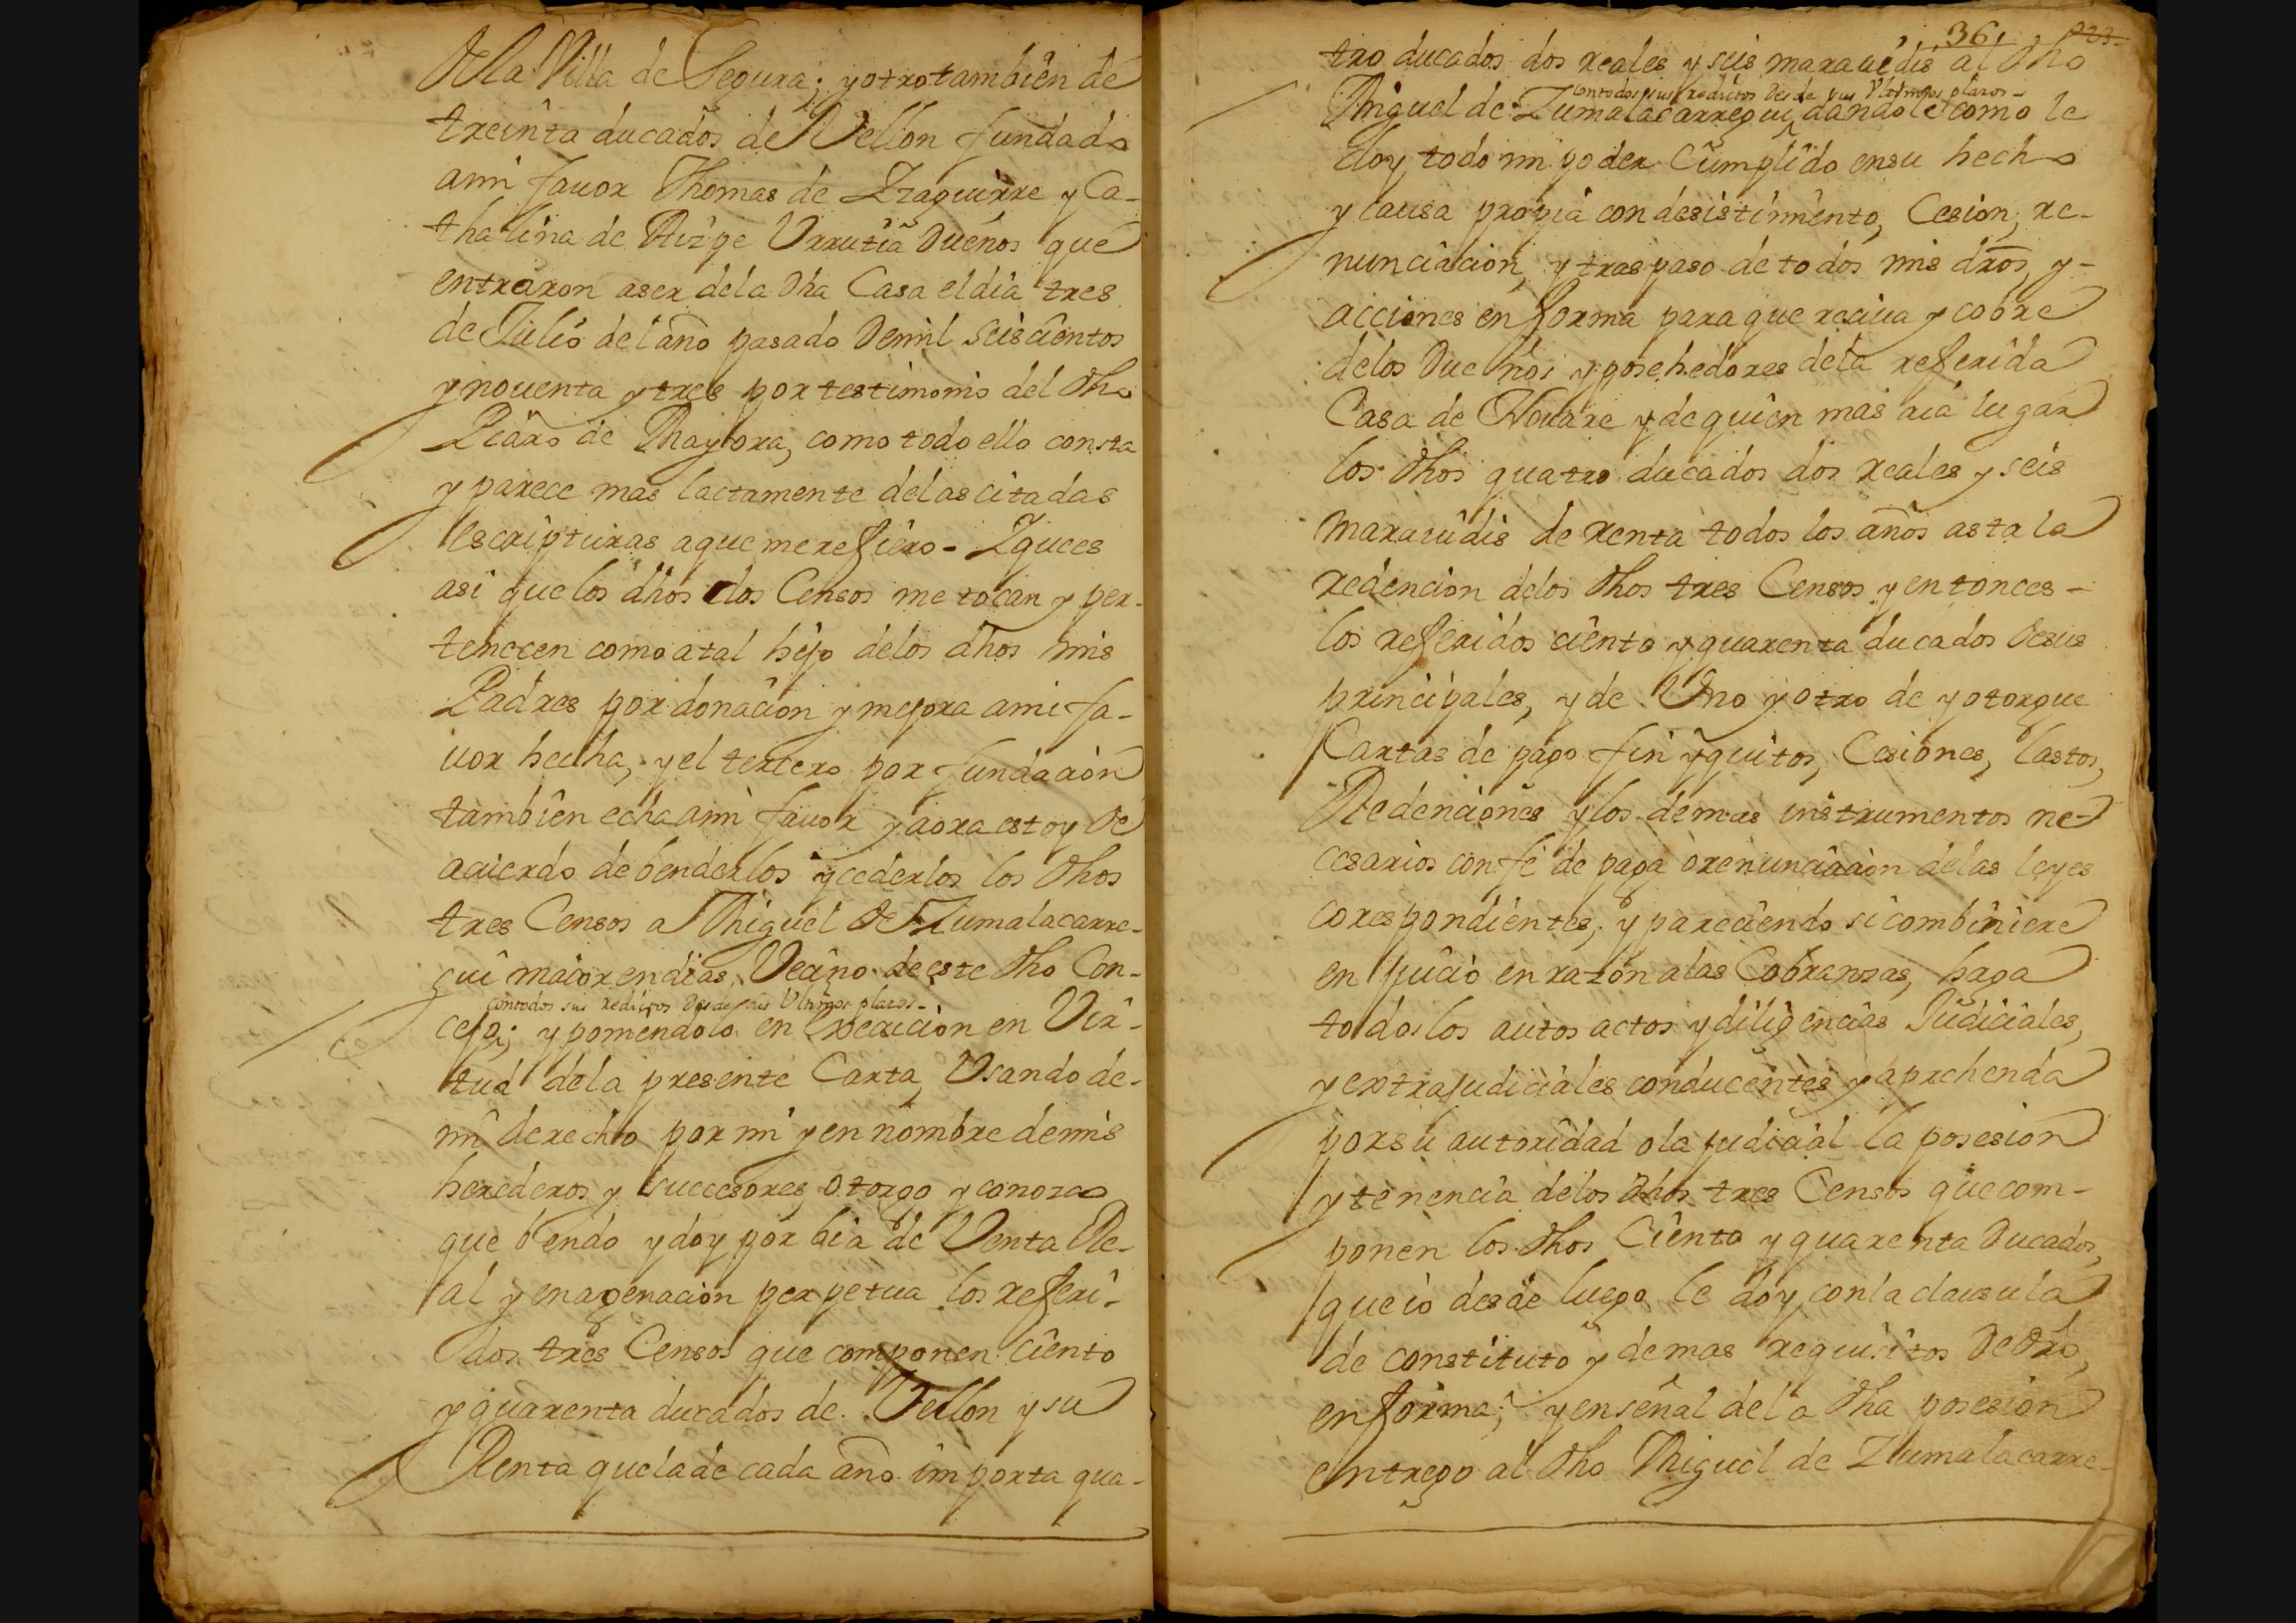 de la Villa de Segura; y otro tambien de
treinta ducados de Vellon fundado
ami favor Thomas de Yzaguirre y Ca-
thalina de Aizpe Urrutia Dueños que
entraron aser dela Dha Casa el dia tres
de Julio del año pasado Demil seiscientos
y noventa y tres por testimonio del dho
de Mayora, como todo ello consta
y parece mas lactamente delas citadas
escripturas aque me refiero - Y pues
asi que los dhos dos Censos me tocan y per-
tenecen como atal hijo delos dhos mis
Padres por donacion y mejora ami fa-
uor hecha, y el tercero por fundacion
tambien echa ami fauor y aora estoy de
acuerdo de benderlos y cederlos los dhos
tres Censos a Miguel de Zumalacarre-
gui maior en dias, Vecino de este dho Con-
contodos sus reditos desde sus Ultimos plazos-
cejo; y poniendolo en execucion en Vir-
tud dela presente Carta, Usando de-
mi derecho por mi y en nombre demis
herederos y succesores otorgo y conozco
que bendo y doy por bia de Venta Re-
al y enagenacion perpetua los referi-
dos tres Censos que componen ciento
y quarenta ducados de Vellon y su
Renta que la de cada año importa qua-
361 223
tro ducados dos reales y seis marauedis al dho
contodos sus reditos desde sus Ultimos plazos-
Miguel de Zumalacarregui dandole como le
doy todo mi poder Cumplido ensu hecho
y causa propia con desistimento, Cesion, re-
nunciacion, y traspaso de todos mis dros, y-
acciones en forma para que reciua y cobre
delos Dueños y posehedores dela referida
Casa de Houare y de quien mas aia lugar
los dhos quatro ducados dos reales y seis
marauidis de renta todos los años asta la
redencion delos dhos tres Censos y entonces-
los referidos ciento y quarenta ducados Desus
principales, y de Uno y otro de y otorgue
Cartas de pago fin y quitos, Cesiones, lastos,
Redenciones y los demas instrumentos ne-
cesarios con fe de paga o renunciacion delas leyes
corespondientes, y pareciendo si combiniere
en juicio en razon alas Cobranzas, haga
todos los autos actos y diligencias Judiciales,
y extrajudiciales conducentes y aprehenda
porsu autoridad ola judicial la posesion
y tenencia delos dhos tres Censos que com-
ponen los dhos Ciento y quarenta Ducados,
que io desde luego le doy con la clausula
de constituto y demas requisitos De dro,
en forma; y enseñal dela dha posesion
entrego al dho Miguel de Zumalacarre-